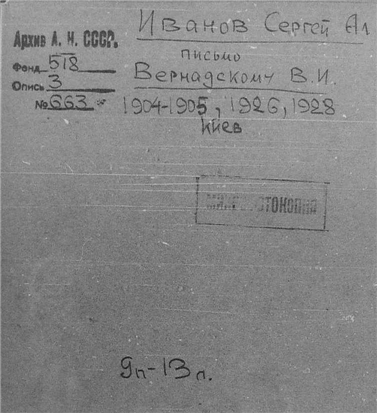 Иванов Сергей Ал
письмо
Вернадскому В.И.
1904-1905, 1926, 1928
Киев
Архив А. Н. СССР.
Фонд 518
Опись 3
№ 663
9п-13л.